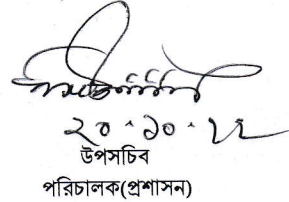 ২০.১০.২২
উপসচিব
পরিচালক(প্রশাসন)